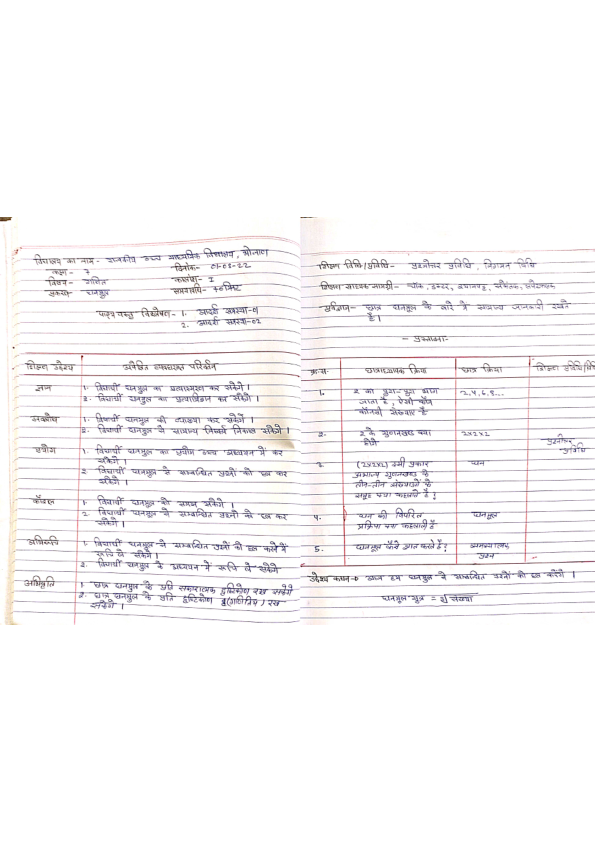 विद्यालय का नाम- राजकीय उच्च माध्यमिक विद्यालय,
कक्षा- 7 दिनांक- 01-08-22
विषय- गणित कालांश- I
प्रकरण- घनमूल समयावधि- 40 मिनट
पाठ्य वस्तु विश्लेषण- 1. आदर्श समस्या-01
2. आदर्श समस्या-02
शिक्षण उद्देश्य अपेक्षित व्यवहारगत परिवर्तन
ज्ञान 1. विद्यार्थी घनमूल का प्रत्यास्मरण कर सकेंगे।
2. विद्यार्थी घनमूल का प्रत्यभिज्ञान कर सकेंगे।
अवबोध 1. विद्यार्थी घनमूल की व्याख्या कर सकेंगे।
2. विद्यार्थी घनमूल से सामान्य निष्कर्ष निकाल सकेंगे।
उपयोग 1. विद्यार्थी घनमूल का प्रयोग उच्च अध्ययन में कर
सकेंगे।
2. विद्यार्थी घनमूल से सम्बन्धित प्रश्नों को हल कर
सकेंगे।
कौशल 1. विद्यार्थी घनमूल को समझ सकेंगे।
2. विद्यार्थी घनमूल से सम्बन्धित प्रश्नों को हल कर
सकेंगे।
अभिरूचि 1. विद्यार्थी घनमूल से सम्बन्धित प्रश्नों को हल करने में
रूचि ले सकेंगे।
2. विद्यार्थी घनमूल के अध्ययन में रूचि ले सकेंगे
अभिवृत्ति 1. छात्र घनमूल के प्रति सकारात्मक दृष्टिकोण रख सकेंगे
2. छात्र घनमूल के प्रति दृष्टिकोण रख
सकेंगे।
शिक्षण विधि/प्रविधि- प्रश्नोत्तर प्रविधि, निगमन विधि
शिक्षण सहायक सामग्री- चॉक, डस्टर, श्यामपट्ट, संकेतक,
पूर्वज्ञान- छात्र घनमूल के बारे में सामान्य जानकारी रखते
है।
- प्रस्तावना-
क्र.स. छात्राध्यापक क्रिया छात्र क्रिया शिक्षण विधि/प्रविधि
1. 2 का पूरा-पूरा भाग 2,4,6,8...
जाता है, ऐसी कौन
कौनसी संख्याएं है
2. 2 के गुणनखण्ड क्या 2x2x2
होंगे प्रश्नोत्तर
प्रविधि
3 (2x2x2) इसी प्रकार घन
समान गुणनखण्ड के
तीन-तीन संख्याओं के
समूह क्या कहलाते है?
4. घन की विपरित घनमूल
प्रक्रिया क्या कहलाती है
5. घनमूल कैसे ज्ञात करते है? समस्यात्मक
प्रश्न
उद्देश्य कथन- आज हम घनमूल से सम्बन्धित प्रश्नों को हल करेंगे।
घनमूल सूत्र = ∛संख्या